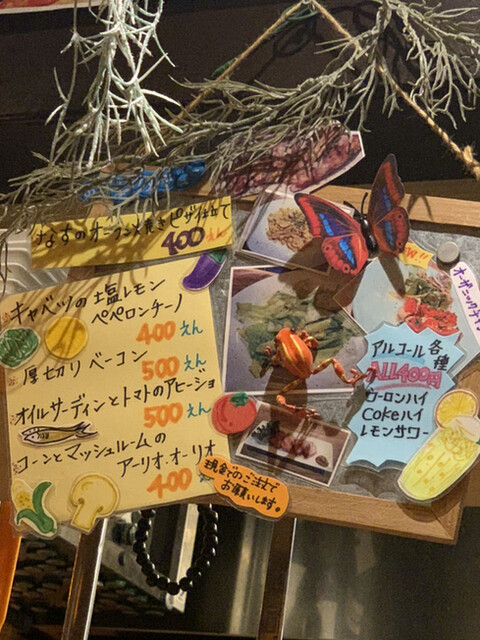 なすのオーブン焼きピザ仕立て
400えん
キャベツの塩レモン
ペペロンチーノ
400えん
厚切りベーコン
500えん
オイルサーディンとトマトのアヒージョ
500えん
コーンとマッシュルームの
アーリオ・オーリオ
400えん
現金でのご注文で
お願いします。
アルコール各種
ALL400円
ウーロンハイ
Cokeハイ
レモンサワー